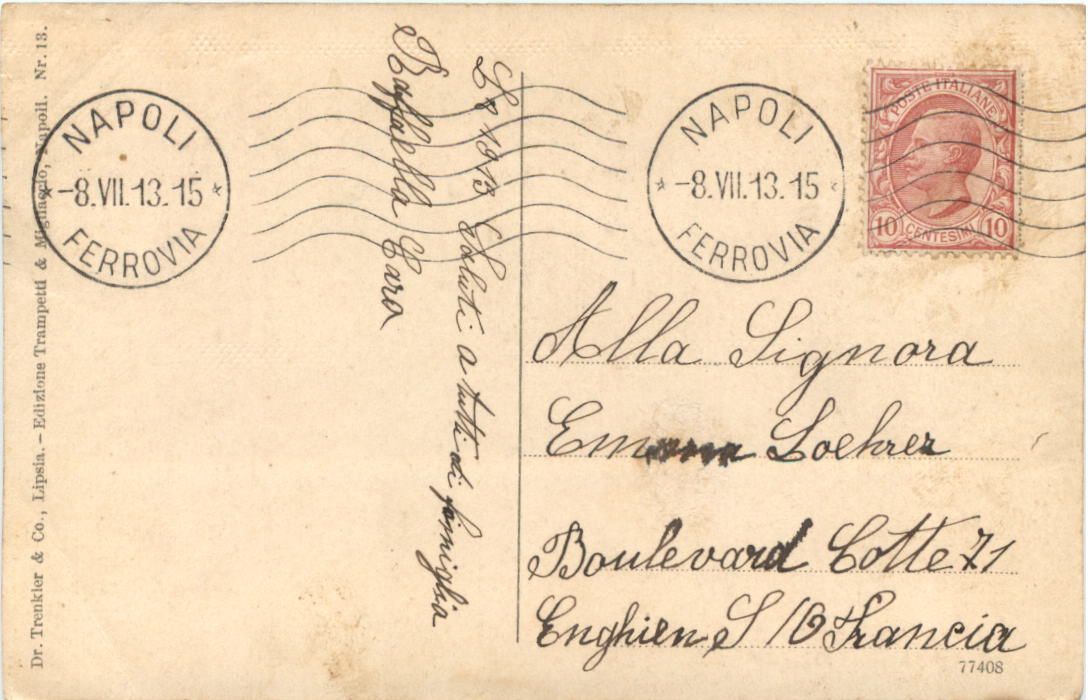 Dr. Trenkler & Co., Lipsia. — Edizione Trampetti & Migliaccio, Napoli. Nr. 13.
NAPOLI
-8.VII.13.15
FERROVIA
1913 Saluti a tutti di famiglia
Raffaella Cara
NAPOLI
-8.VII.13.15
FERROVIA
POSTE ITALIANE
10 CENTESIMI 10
Alla Signora
Emma Loehrer
Boulevard Cotte 71
Enghien S/O Francia
77408